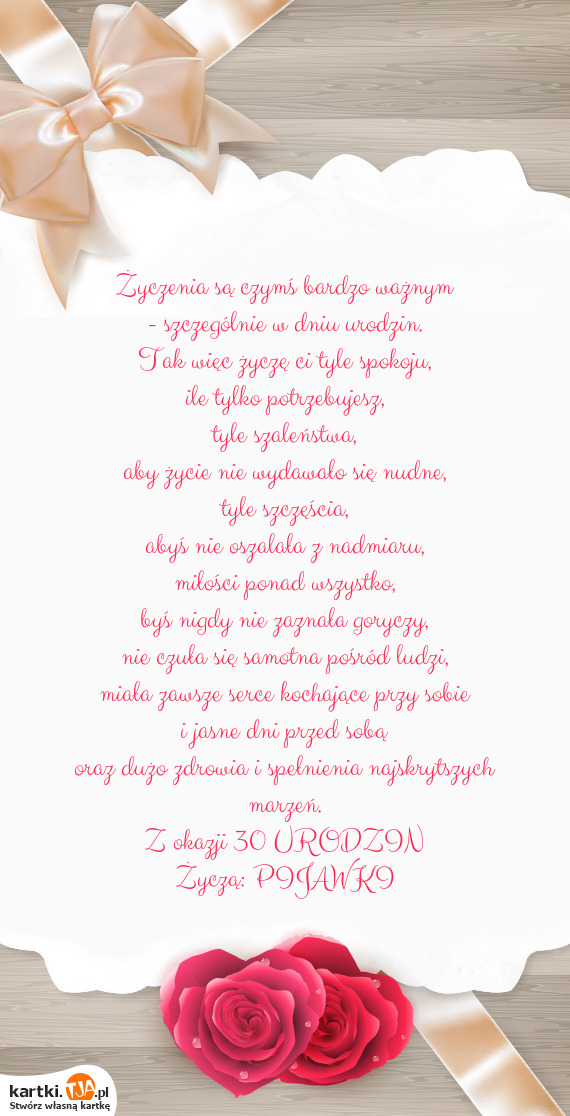 Życzenia są czymś bardzo ważnym
- szczególnie w dniu urodzin.
Tak więc życzę ci tyle spokoju,
ile tylko potrzebujesz,
tyle szaleństwa,
aby życie nie wydawało się nudne,
tyle szczęścia,
abyś nie oszalała z nadmiaru,
miłości ponad wszystko,
byś nigdy nie zaznała goryczy,
nie czuła się samotna pośród ludzi,
miała zawsze serce kochające przy sobie
i jasne dni przed sobą
oraz dużo zdrowia i spełnienia najskrytszych
marzeń.
Z okazji 30 URODZIN
Życzą: PIJAWKI
kartki.TJA.pl
Stwórz własną kartkę